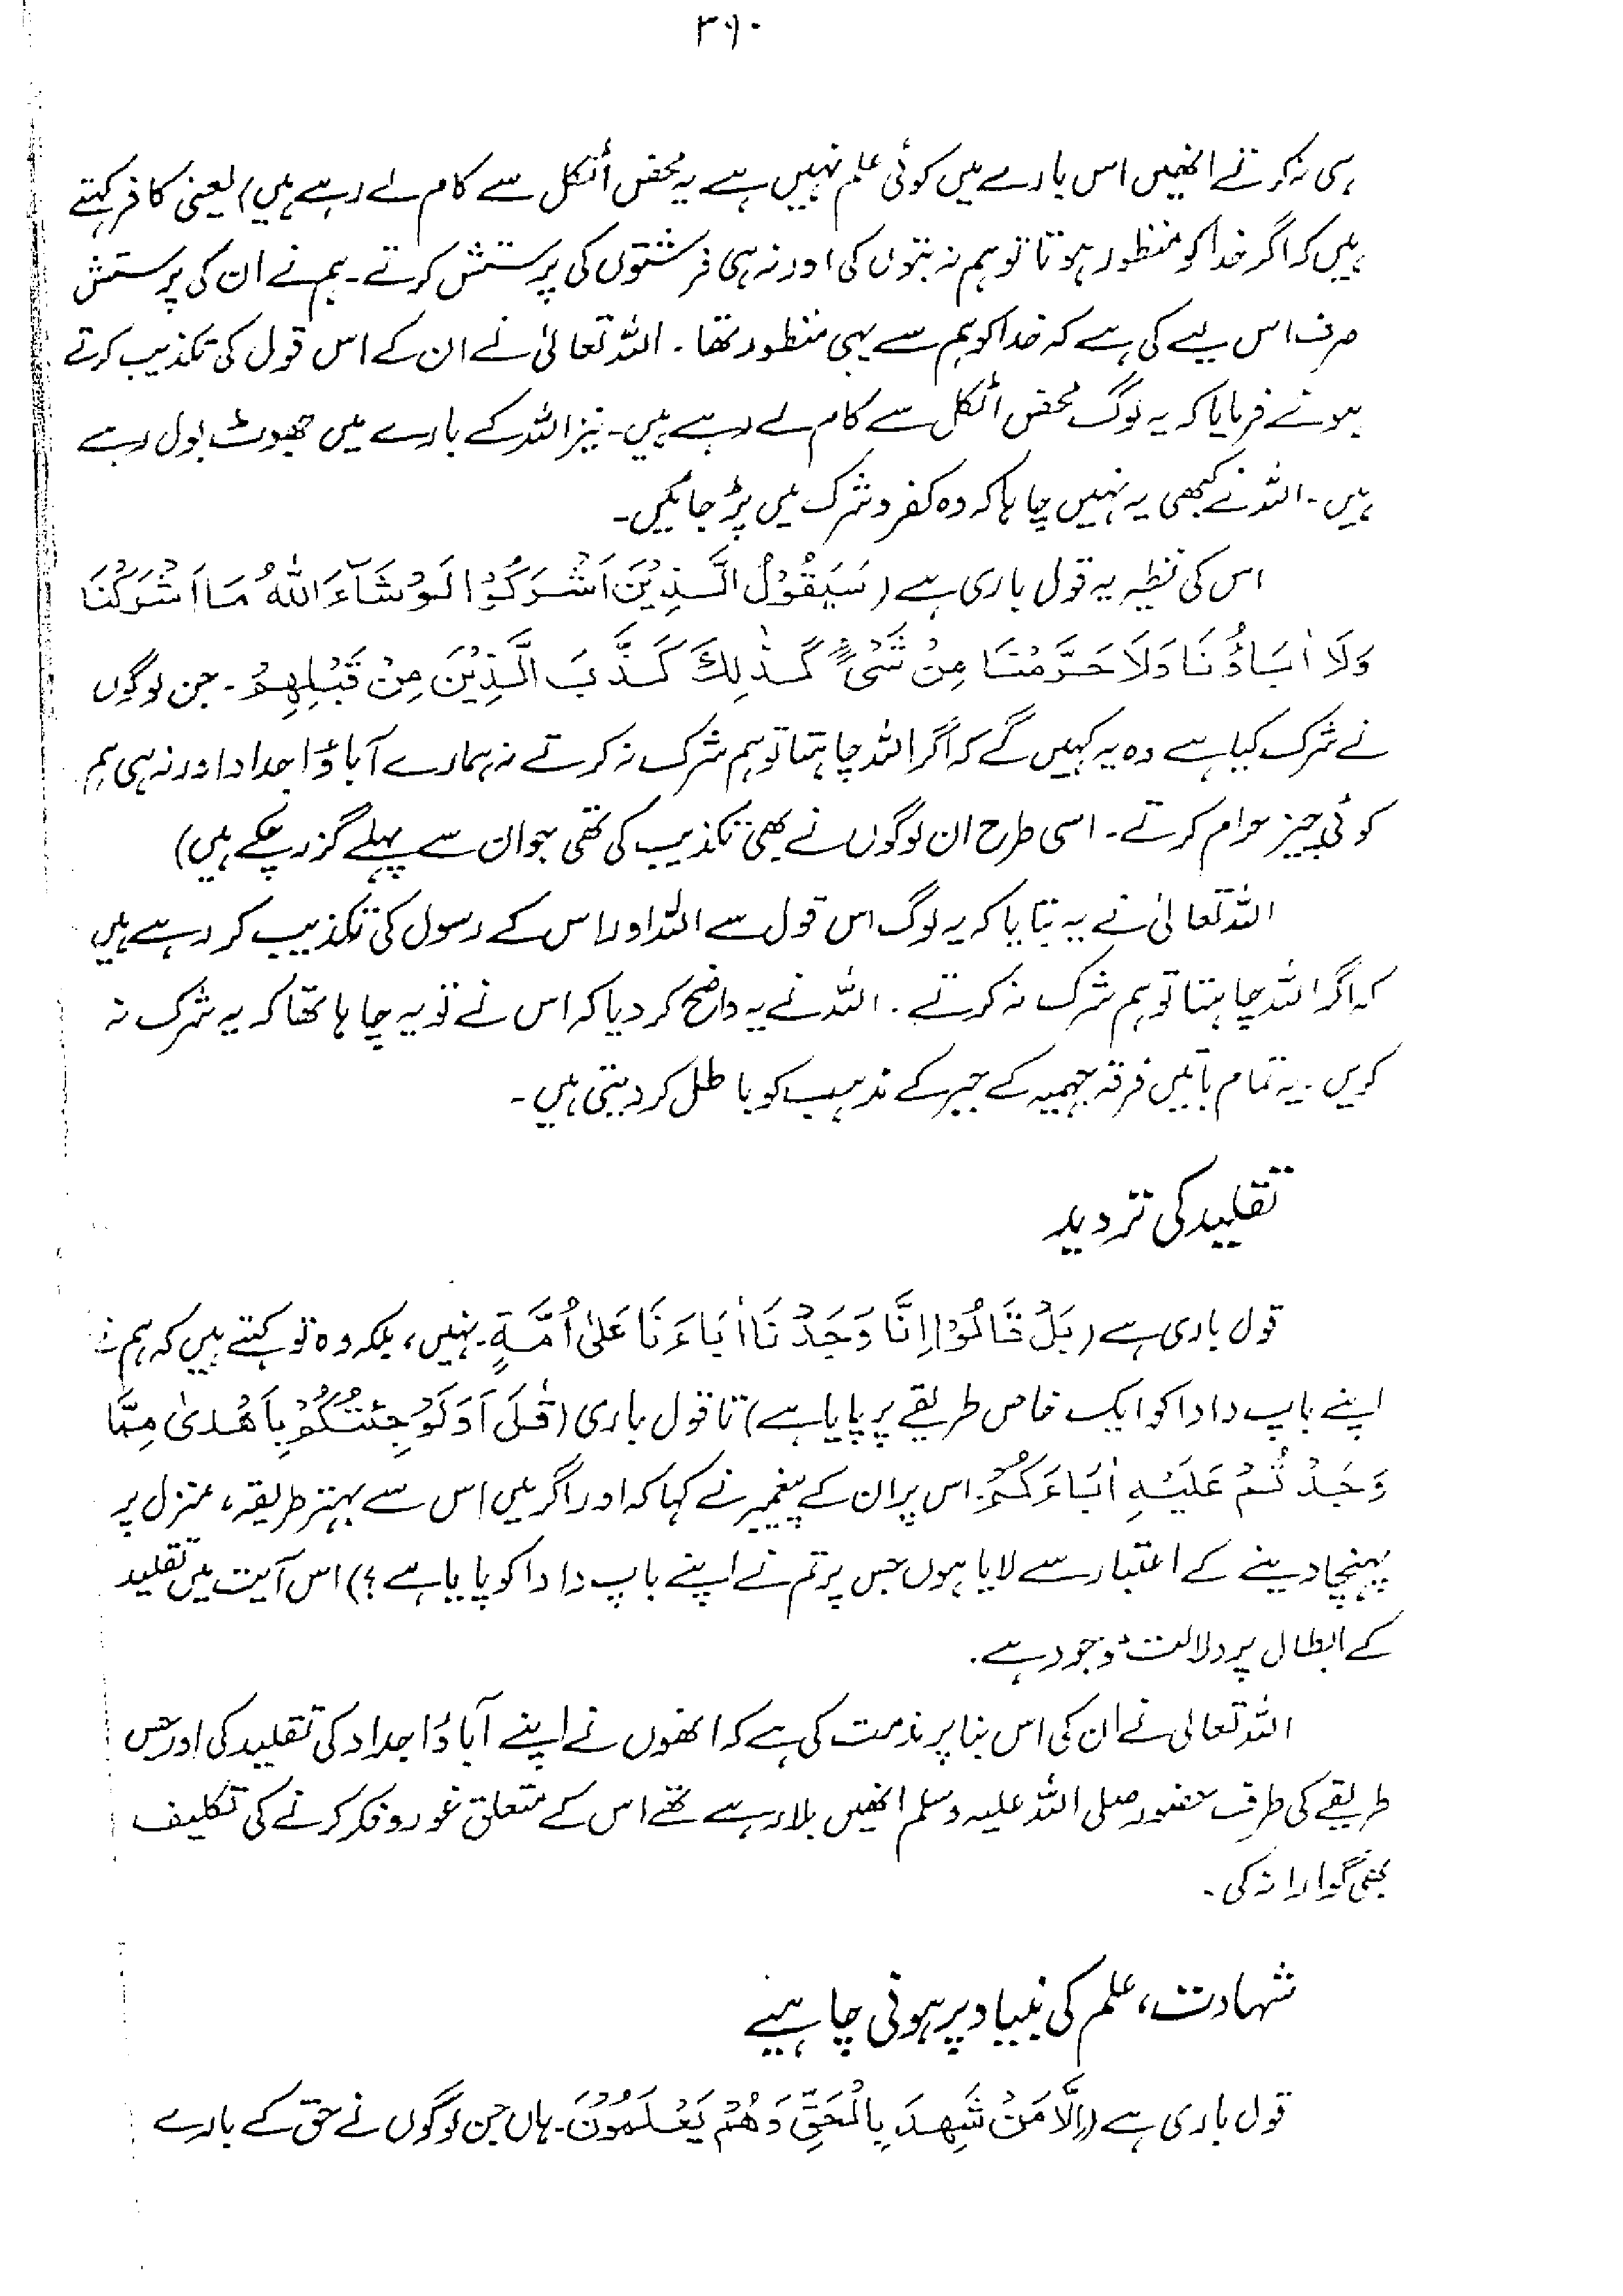 ۳۹۰
ہی نہ کرتے انھیں اس بارے میں کوئی علم نہیں ہے یہ محض اٹکل سے کام لے رہے ہیں) یعنی کافر کہتے
ہیں کہ اگر خدا کو منظور ہوتا تو ہم نہ بتوں کی اور نہ ہی فرشتوں کی پرستش کرتے۔ ہم نے ان کی پرستش
صرف اس لیے کی ہے کہ خدا کو ہم سے یہی منظور تھا۔ اللہ تعالیٰ نے ان کے اس قول کی تکذیب کرتے
ہوئے فرمایا کہ یہ لوگ محض اٹکل سے کام لے رہے ہیں۔ نیز اللہ کے بارے میں جھوٹ بول رہے
ہیں۔ اللہ نے کبھی یہ نہیں چاہا کہ وہ کفر و شرک میں پڑ جائیں۔
اس کی نظیر یہ قول باری ہے (سَيَقُوْلُ الَّذِيْنَ اَشْرَكُوْا لَوْ شَآءَ اللّٰهُ مَا اَشْرَكْنَا
وَلَا اٰبَاؤُنَا وَلَا حَرَّمْنَا مِنْ شَىْءٍ كَذٰلِكَ كَذَّبَ الَّذِيْنَ مِنْ قَبْلِهِمْ۔ جن لوگوں
نے شرک کیا ہے وہ یہ کہیں گے کہ اگر اللہ چاہتا تو ہم شرک نہ کرتے نہ ہمارے آباؤ اجداد اور نہ ہی ہم
کوئی چیز حرام کرتے۔ اسی طرح ان لوگوں نے بھی تکذیب کی تھی جو ان سے پہلے گزر چکے ہیں)
اللہ تعالیٰ نے یہ بتایا کہ یہ لوگ اس قول سے اللہ اور اس کے رسول کی تکذیب کر رہے ہیں
کہ اگر اللہ چاہتا تو ہم شرک نہ کرتے۔ اللہ نے یہ واضح کر دیا کہ اس نے تو یہ چاہا تھا کہ یہ شرک نہ
کریں۔ یہ تمام باتیں فرقہ جہمیہ کے جبر کے مذہب کو باطل کر دیتی ہیں۔
تقلید کی تردید
قول باری ہے (بَلْ قَالُوْا اِنَّا وَجَدْنَا اٰبَاءَنَا عَلىٰ اُمَّةٍ۔ نہیں، بلکہ وہ تو کہتے ہیں کہ ہم نے
اپنے باپ دادا کو ایک خاص طریقے پر پایا ہے) تا قول باری (قٰلَ اَوَلَوْ جِئْتُكُمْ بِاَهْدىٰ مِمَّا
وَجَدْتُمْ عَلَيْهِ اٰبَاءَكُمْ۔ اس پر ان کے پیغمبر نے کہا کہ اور اگر میں اس سے بہتر طریقہ، منزل پر
پہنچا دینے کے اعتبار سے لایا ہوں جس پر تم نے اپنے باپ دادا کو پایا ہے؟) اس آیت میں تقلید
کے ابطال پر دلالت موجود ہے۔
اللہ تعالی نے ان کی اس بنا پر مذمت کی ہے کہ انھوں نے اپنے آباؤ اجداد کی تقلید کی اور جس
طریقے کی طرف حضور صلی اللہ علیہ وسلم انھیں بلا رہے تھے اس کے متعلق غور و فکر کرنے کی تکلیف
بھی گوارا نہ کی۔
شہادت، علم کی بنیاد پر ہونی چاہیے
قول باری ہے (اِلَّا مَنْ شَهِدَ بِالْحَقِّ وَهُمْ يَعْلَمُوْنَ۔ ہاں جن لوگوں نے حق کے بارے